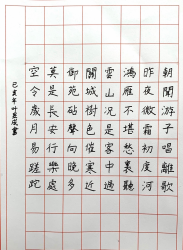 朝聞游子唱離歌
昨夜微霜初度河
鴻雁不堪愁裏聽
雲山況是客中過
關城樹色催寒近
御苑砧聲向晚多
莫是長安行樂處
空令歲月易蹉跎
己亥年叶書